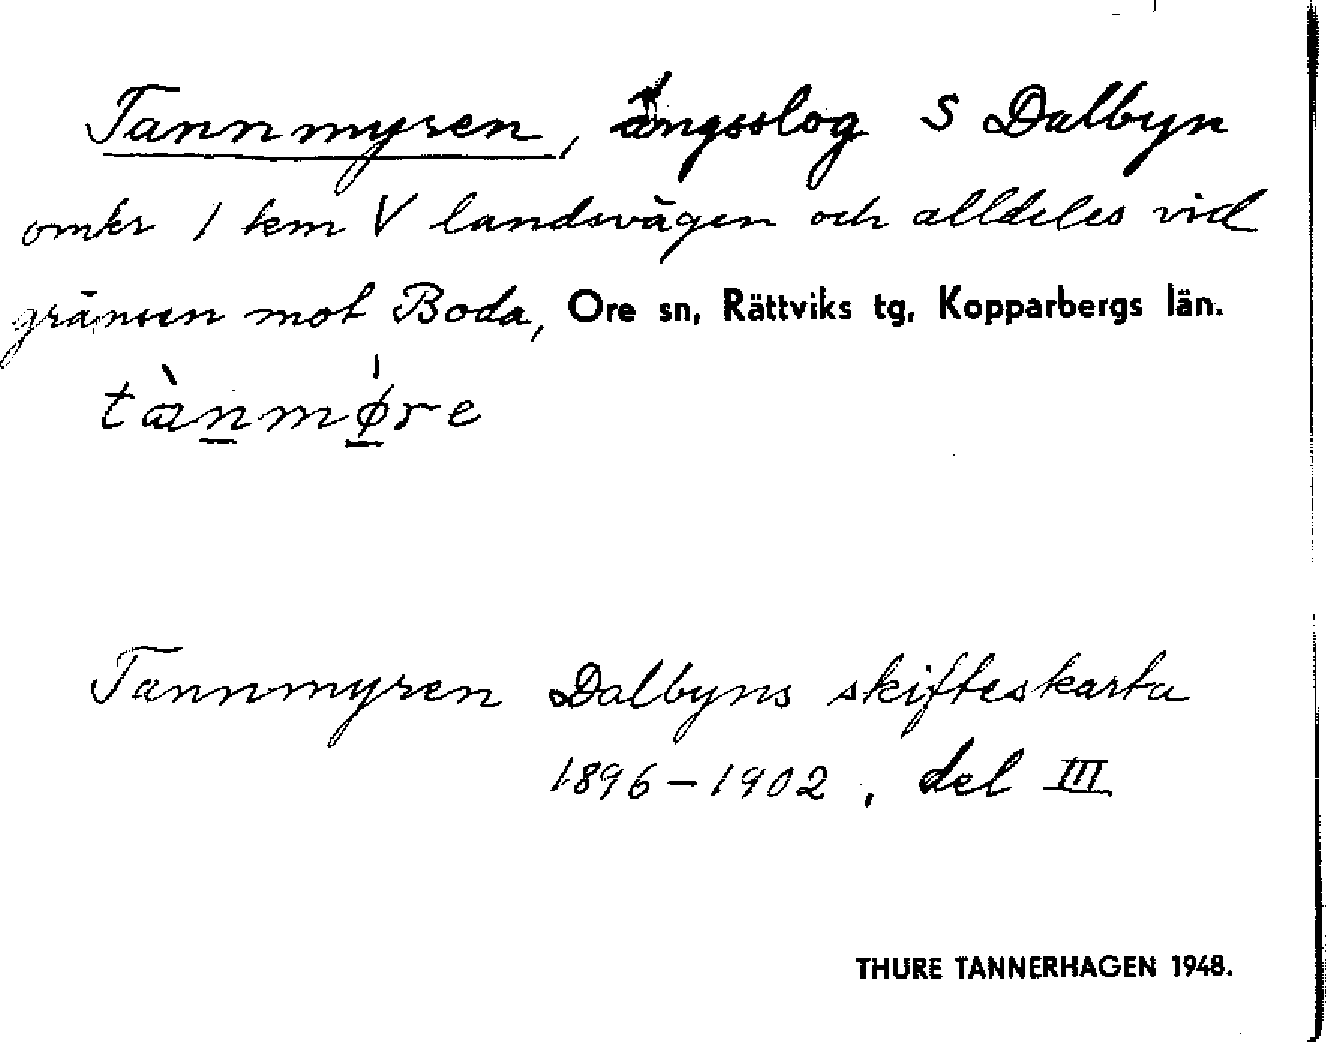 Tannmyren, ängsslog S Dalbyn
omkr 1 km V landsvägen och alldeles vid
gränsen mot Boda, Ore sn, Rättviks tg, Kopparbergs län.
tànmøre
Tannmyren Dalbyns skifteskarta
1896–1902, del III
THURE TANNERHAGEN 1948.